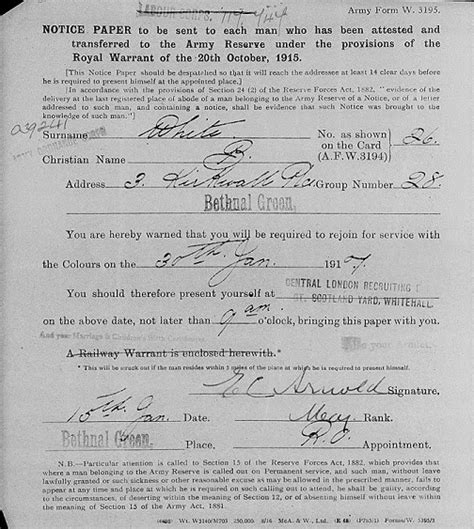 LABOUR CORPS. 444
Army Form W. 3195.
NOTICE PAPER to be sent to each man who has been attested and
transferred to the Army Reserve under the provisions of the
Royal Warrant of the 20th October, 1915.
[This Notice Paper should be despatched so that it will reach the addressee at least 14 clear days before
he is required to present himself at the appointed place.]
[In accordance with the provisions of Section 24 (2) of the Reserve Forces Act, 1882, "evidence of the
delivery at the last registered place of abode of a man belonging to the Army Reserve of a Notice, or of a letter
addressed to such man, and containing a notice, shall be evidence that such Notice was brought to the
knowledge of such man."]
Surname White No. as shown on the Card (A.F.W.3194) 26.
Christian Name B.
Address 3. Kirkwall Place Group Number 28.
Bethnal Green.
You are hereby warned that you will be required to rejoin for service with
the Colours on the 30th Jan. 1917
You should therefore present yourself at CENTRAL LONDON RECRUITING
GT. SCOTLAND YARD, WHITEHALL.
on the above date, not later than 9 am o'clock, bringing this paper with you.
And your Marriage & Children's Birth Certificates.
A Railway Warrant is enclosed herewith.*
* This will be struck out if the man resides within 5 miles of the place at which he is required to present himself.
E C Arnold Signature.
15th Jan. Date. Maj Rank.
Bethnal Green. Place, R.O. Appointment.
N.B.—Particular attention is called to Section 15 of the Reserve Forces Act, 1882, which provides that
where a man belonging to the Army Reserve is called out on Permanent service, and such man, without leave
lawfully granted or such sickness or other reasonable excuse as may be allowed in the prescribed manner, fails to
appear at any time and place at which he is required on such calling out to attend, he shall be guilty, according
to the circumstances, of deserting within the meaning of Section 12, or of absenting himself without leave within
the meaning of Section 15 of the Army Act, 1881.
Wt. W3140/M703 250,000 8/16 McA. & W., Ltd. (E 48) Forms/W. 3195/3